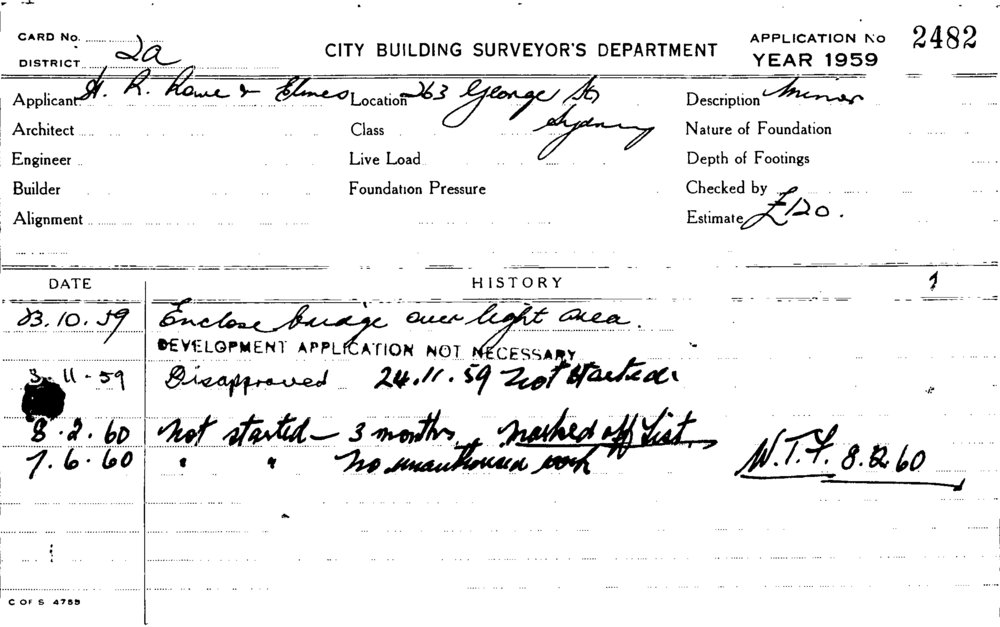 CARD No.
DISTRICT 2a
CITY BUILDING SURVEYOR'S DEPARTMENT
APPLICATION No 2482
YEAR 1959
Applicant H. R. Rowe & Elmes Location 263 George St Description Minor
Architect Class Sydney Nature of Foundation
Engineer Live Load Depth of Footings
Builder Foundation Pressure Checked by
Alignment Estimate £120.
DATE HISTORY
23.10.59 Enclose bridge over light area.
DEVELOPMENT APPLICATION NOT NECESSARY
3-11-59 Disapproved 24.11.59 Not started.
8.2.60 Not started - 3 months. Marked off List
7.6.60 " " No unauthorised work W.T.F. 8.2.60
C OF S 4755